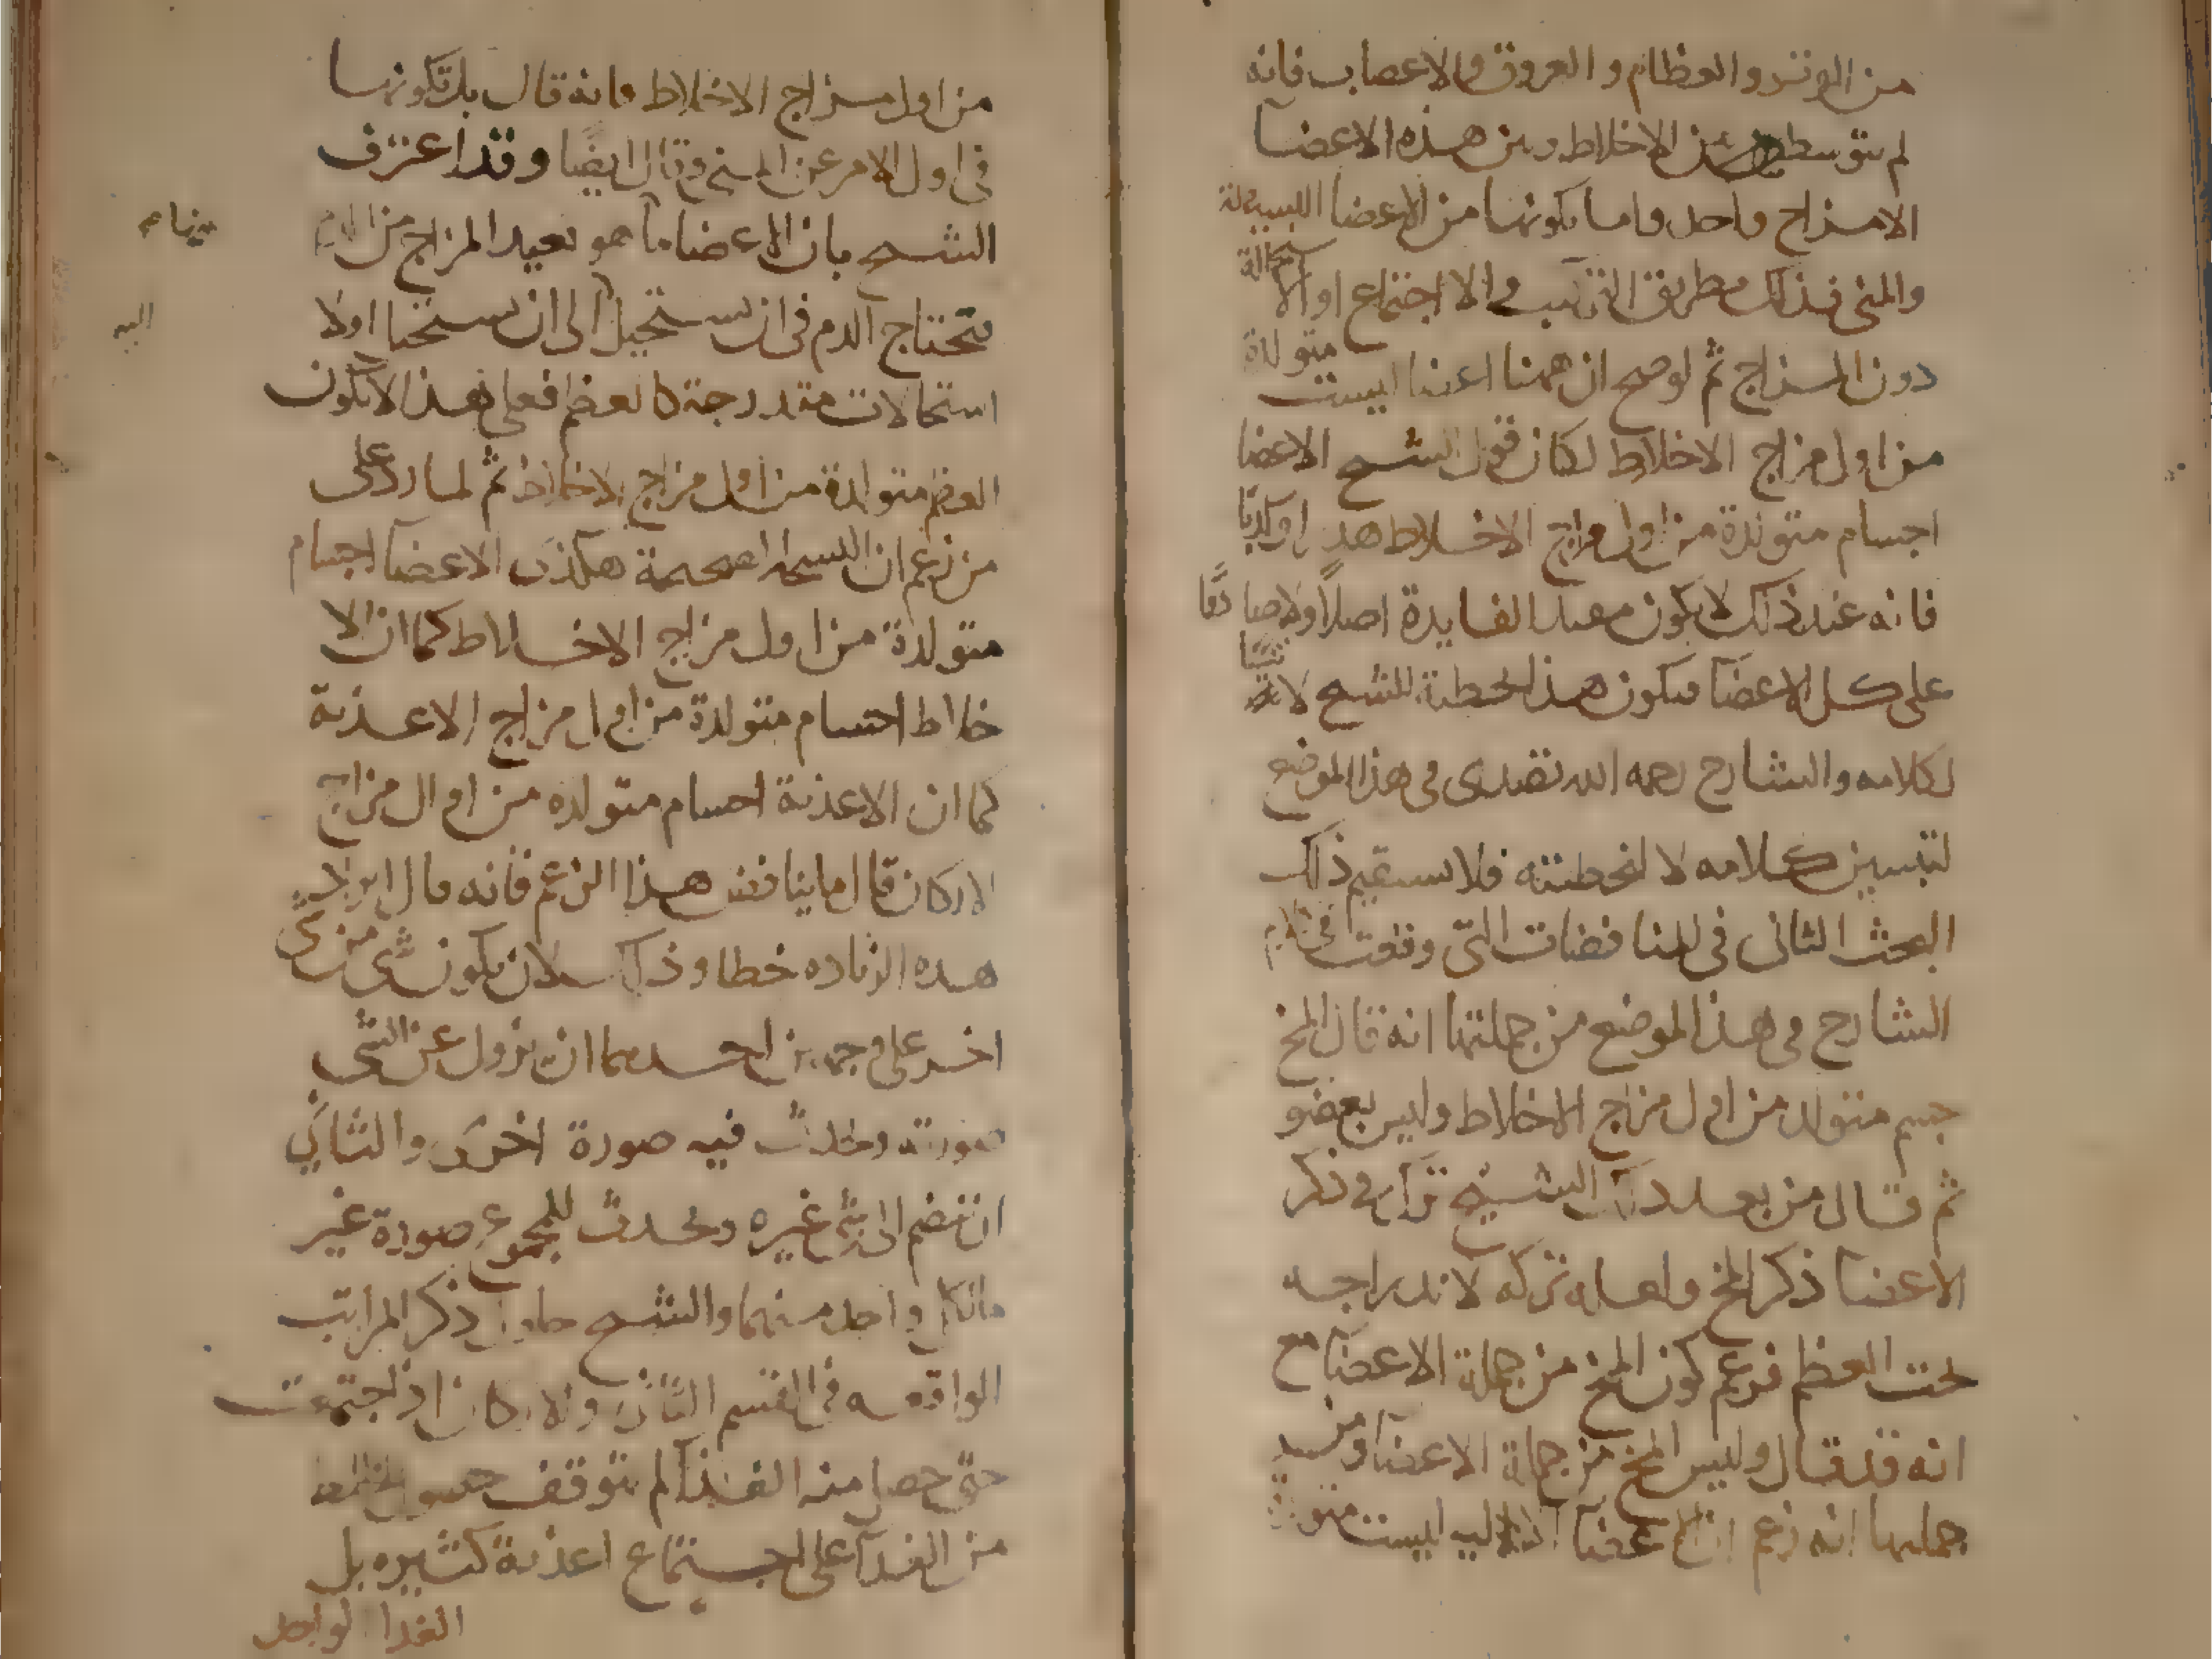 من الوتر والعظام والعروق والاعصاب فانه
لم يتوسط بين الاخلاط وبين هذه الاعضا
الامزاج واحد واما تكونها من الاعضا البسيطة
والمنى فذلك بطريق التركيب والاجتماع او الاستحالة
دون المزاج ثم لو صح ان ههنا اعضا ليست متولدة
من اول مزاج الاخلاط لكان قول الشيخ الاعضا
اجسام متولدة من اول مزاج الاخلاط هدرا وكذبا
فانه عند ذلك لا يكون مفيد الفايدة اصلا ولا صادقا
على كل الاعضا فيكون هذا تخطية للشيخ لا تبيينا
لكلامه والشارح رحمه الله تصدى فى هذا الموضع
لتبيين كلامه لا لتخطئته فلا يستقيم ذلك
البحث الثانى فى المناقضات التى وقعت فى كلام
الشارح فى هذا الموضع من جملتها انه قال المخ
جسم متولد من اول مزاج الاخلاط وليس بعضو
ثم قال من بعد ذلك الشيخ ترك فى ذكر
الاعضا ذكر المخ ولعله تركه لاندراجه
تحت العظم فزعم كون المخ من جملة الاعضا مع
انه قد قال وليس المخ من جملة الاعضا ومن
جملتها انه زعم ان الاعضا الالية ليست متولدة
من اول مزاج الاخلاط فانه قال بل تكونها
فى اول الامر عن المنى وقال ايضا وقد اعترف
الشيخ بان الاعضا ما هو بعيد المزاج من الدم
يحتاج الدم فى ان يستحيل الى ان يستحيل اولا
استحالات متدرجة كالعظم فعلى هذا لا يكون
العظم متولدة من اول مزاج الاخلاط ثم لما رد على
من زعم ان النسخة الصحيحة هكذى الاعضا اجسام
متولدة من اول مزاج الاخلاط كما ان الا
خلاط اجسام متولدة من اول مزاج الاغذية
كما ان الاغذية اجسام متولده من اول مزاج
الاركان قال ما يناقض هذا الزعم فانه قال ايراد
هذه الزياده خطا وذلك لان تكون شى من شى
اخر على وجهين احدهما ان يزول عن الشى
صورته وتحدث فيه صورة اخرى والثانى
ان ينضم الى شى غيره وتحدث للمجموع صورة غير
ما لكل واحد منهما والشيخ حاول ذكر المراتب
الواقعه فى القسم الثانى والاركان اذا اجتمعت
حتى حصل منه الغذا لم يتوقف حصول الخلط
من الغذا على اجتماع اغذية كثيره بل
الغذا الواحد